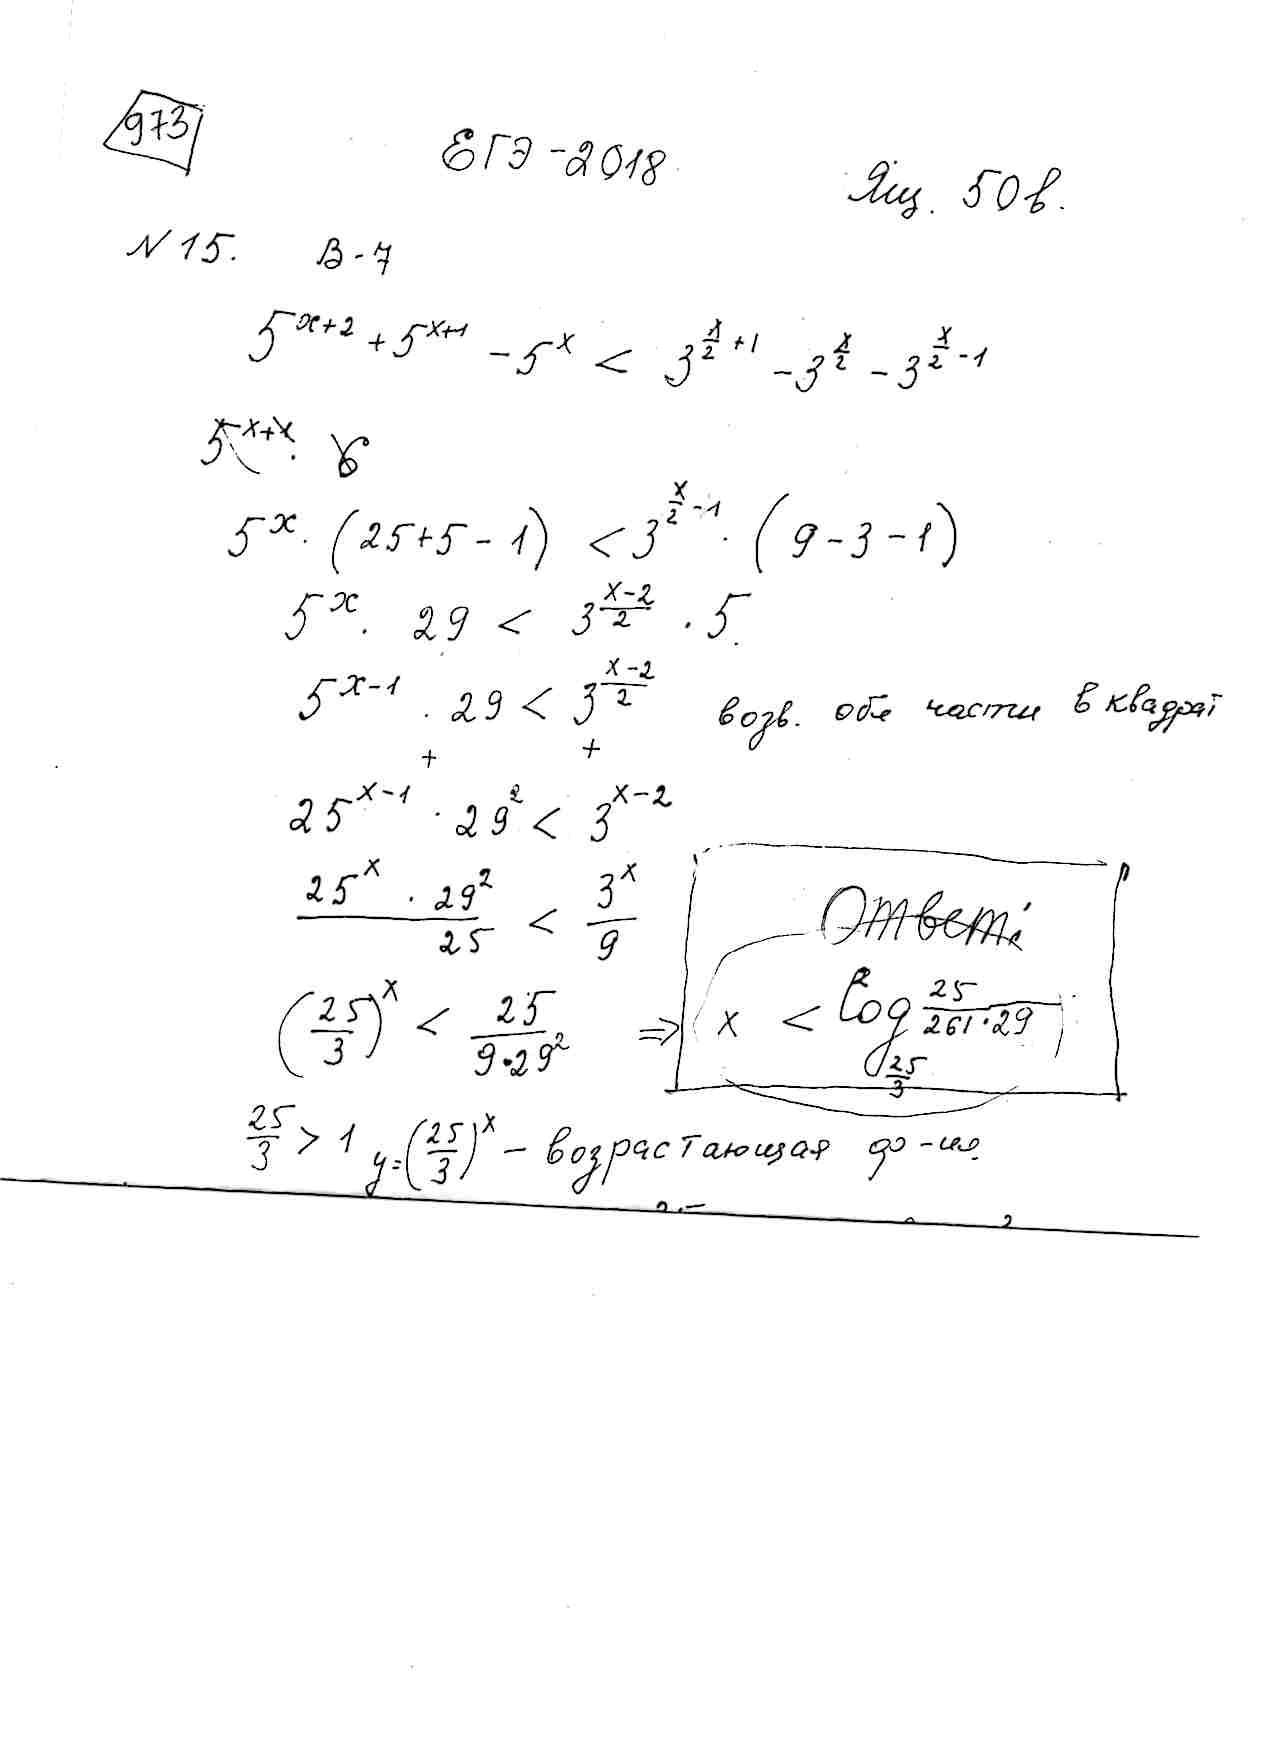 973
ЕГЭ-2018
Ящ. 50в.
N 15. В-7
5^{x+2} + 5^{x+1} - 5^x < 3^{\frac{x}{2}+1} - 3^{\frac{x}{2}} - 3^{\frac{x}{2}-1}
5^x · (25+5-1) < 3^{\frac{x}{2}-1} · (9-3-1)
5^x · 29 < 3^{\frac{x-2}{2}} · 5
5^{x-1} · 29 < 3^{\frac{x-2}{2}} возв. обе части в квадрат
+ +
25^{x-1} · 29^2 < 3^{x-2}
\frac{25^x · 29^2}{25} < \frac{3^x}{9}
Ответ:
(\frac{25}{3})^x < \frac{25}{9·29^2} ⇒ x < log_{\frac{25}{3}} \frac{25}{261·29}
\frac{25}{3} > 1 y=(\frac{25}{3})^x - возрастающая ф-ия.